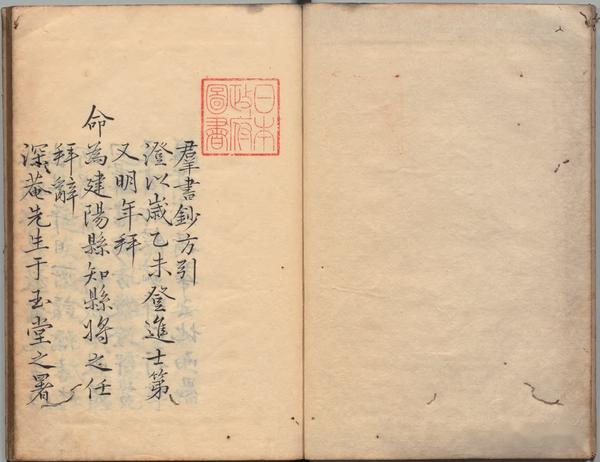 日本
政府
圖書
羣書鈔方引
澄以歲乙未登進士第
又明年拜
命為建陽縣知縣將之任
拜辭
深菴先生于玉堂之署